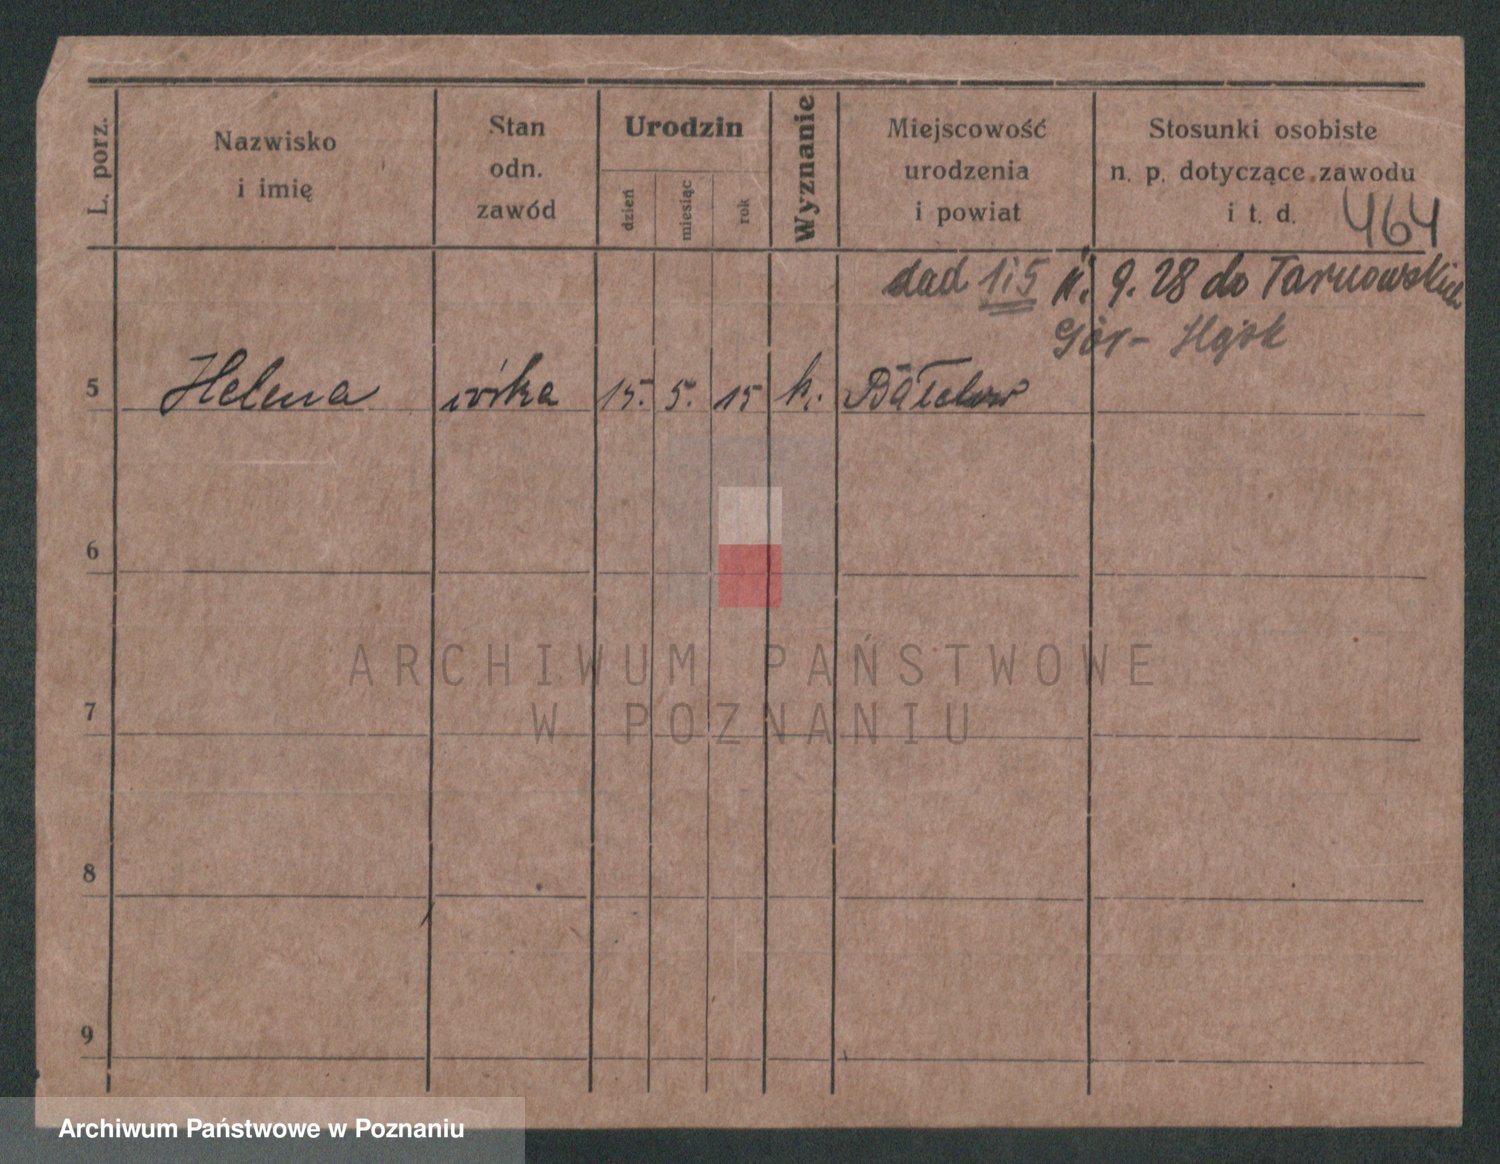 L. porz.
Nazwisko
i imię
Stan
odn.
zawód
Urodzin
dzień
miesiąc
rok
Wyznanie
Miejscowość
urodzenia
i powiat
Stosunki osobiste
n. p. dotyczące zawodu
i t. d.
464
1 i 5 9. 28 do Tarnowskich
Gór -
5 Helena córka 15. 5. 15 k.
6
7
8
9
ARCHIWUM PAŃSTWOWE
W POZNANIU
Archiwum Państwowe w Poznaniu